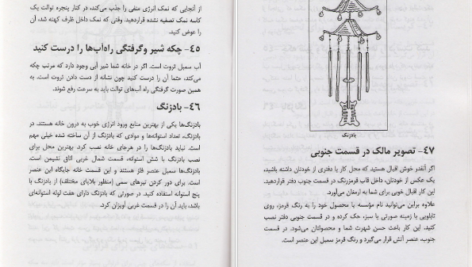 از آنجایی که نمک انرژی منفی را جذب می‌کند، در کنار پنجره توالت یک
کاسه نمک تصفیه نشده قراردهید. وقتی که نمک داخل ظرف کهنه شد، آن
را عوض کنید.
۴۵- چکه شیر وگرفتگی راه‌آب‌ها را درست کنید
آب سمبل ثروت است. اگر در خانه شما شیر آبی وجود دارد که مرتب چکه
می‌کند، حتما آن را درست کنید چون نشانه از دست دادن ثروت است. به
همین صورت گرفتگی راه آب‌های توالت باید به سرعت رفع شوند.
۴۶- بادزنگ
بادزنگ‌ها یکی از بهترین منابع ورود انرژی خوب به درون خانه هستند. در
بادزنگ، تعداد استوانه‌ها و موادی که بادزنگ از آن ساخته شده خیلی مهم
است. نباید بادزنگ‌ها را در هرجای خانه نصب کرد. بهترین محل برای
نصب بادزنگ با شش استوانه، قسمت شمال غربی اتاق نشیمن است.
بادزنگ‌ها سمبل عنصر فلز هستند و این قسمت خانه جایگاه این عنصر
است. برای دور کردن تیرهای سمی (منظور بلایای مختلف) از بادزنگ با
پنج استوانه استفاده کنید. در صورتی که بادزنگ دارای هفت لوله استوانه‌ای
باشد، باید آن را در قسمت غربی آویزان کرد.
بادزنگ
۴۷- تصویر مالک در قسمت جنوبی
اگر آنقدر خوش اقبال هستید که محل کار یا دفتری از خودتان داشته باشید،
یک عکس از خودتان، داخل قاب قرمزرنگ در قسمت جنوب دفتر قراردهید.
این کار اقبال خوبی برای شما به ارمغان می‌آورد.
علاوه براین می‌توانید نام مؤسسه یا محصول خود را به رنگ قرمز، روی
تابلویی با زمینه صورتی یا سبز، حک کرده و در قسمت جنوبی دفتر نصب
کنید. این کار باعث حسن شهرت شما و محصولتان می‌شود. در قسمت
جنوب، عنصر آتش قرار می‌گیرد و رنگ قرمز سمبل این عنصر است.